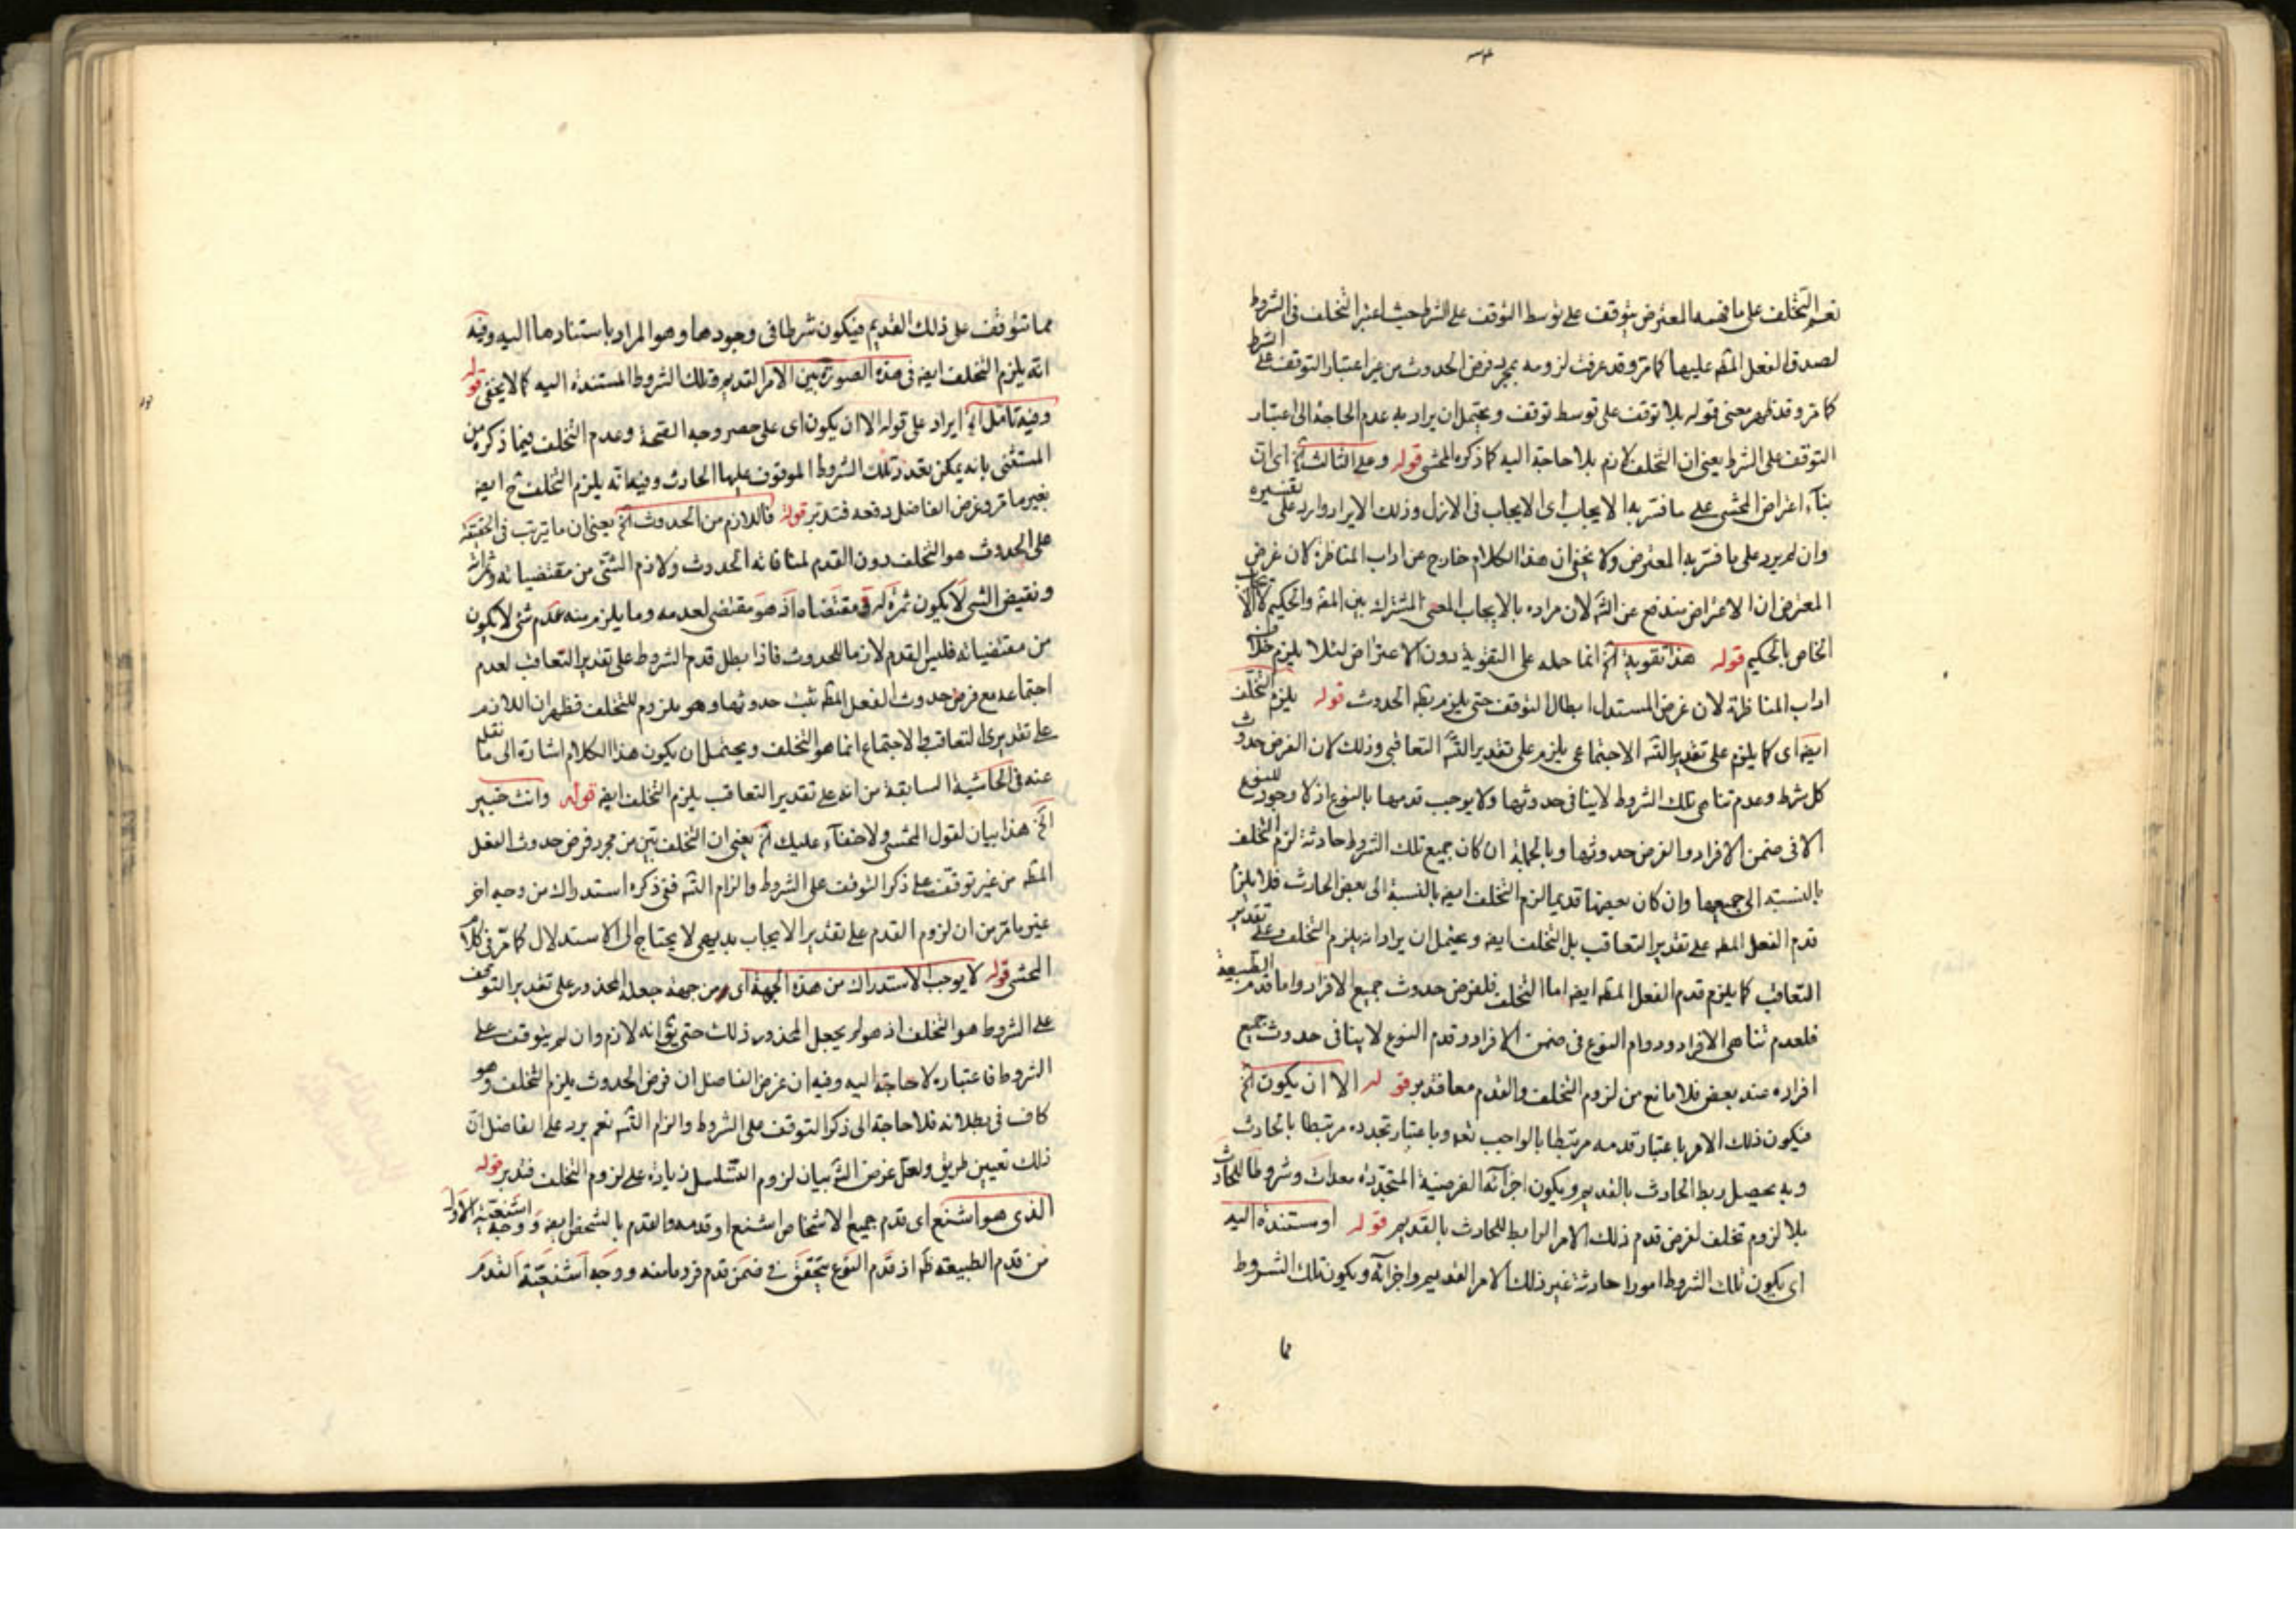 نعم التخلف على ما فهمه المعترض يتوقف على توسط التوقف على الشرط حيث اعتبر التخلف في الشروط
لصدق الفعل المط عليها كما مر وقد عرفت لزومه بمجرد فرض الحدوث من غير اعتبار التوقف على الشرط
كما مر وقد ظهر معنى قوله بلا توقف على توسط توقف ويحتمل ان يراد به عدم الحاجة الى اعتبار
التوقف على الشرط يعني ان التخلف لازم بلا حاجة اليه كما ذكره المحشي قوله وعلى الثالث الخ اى ان
بناء اعتراض المحشي على ما فسر به الايجاب اى الايجاب في الازل وذلك الايراد وارد على تفسيره
وان لم يرد على ما فسر به المعترض ولا يخفى ان هذا الكلام خارج عن اداب المناظرة لان غرض
المعترض ان الاعتراض مندفع عن الش لان مراده بالايجاب المعنى المشترك بين المط والحكيم لا الايجاب
الخاص بالحكيم قوله هذا تقوية الخ انما حمله على التقوية دون الاعتراض لئلا يلزم خلاف
اداب المناظرة لان غرض المستدل ابطال التوقف حتى يلزم بط الحدوث قوله يلزم التخلف
ايضه اى كما يلزم على تقدير التسه الاجتماعى يلزم على تقدير التسه التعاقبى وذلك لان الفرض حدوث
كل شرط وعدم تناهى تلك الشروط لا ينافى حدوثها ولا يوجب قدمها بالنوع اذ لا وجود للنوع
الا فى ضمن الافراد والفرض حدوثها وبالجملة ان كان جميع تلك الشروط حادثة لزم التخلف
بالنسبة الى جميعها وان كان بعضها قديما لزم التخلف ايضه بالنسبة الى بعض الحادث فلا يلزم
قدم الفعل المط على تقدير التعاقب بل التخلف ايضه ويحتمل ان يراد انه يلزم التخلف على تقدير
التعاقب كما يلزم قدم الفعل المط ايضه اما التخلف فلفرض حدوث جميع الافراد واما قدم الطبيعة
فلعدم تناهى الافراد ودوام النوع فى ضمن الافراد وقدم النوع لا ينافى حدوث جميع
افراده عند بعض فلا مانع من لزوم التخلف والقدم معا فتدبر قوله الا ان يكون الخ
فيكون ذلك الامر باعتبار قدمه مرتبطا بالواجب تعه وباعتبار تجدده مرتبطا بالحادث
وبه يحصل ربط الحادث بالقديم ويكون اجزائه الفرضية المتجددة معدات وشروطا للحادث
بلا لزوم تخلف لفرض قدم ذلك الامر الرابط للحادث بالقديم قوله او مستندة اليه
اى يكون تلك الشروط امورا حادثة غير ذلك الامر القديم واجزائه ويكون تلك الشروط
مما
مما تتوقف على ذلك القديم فيكون شرطا فى وجودها وهو المراد باستنادها اليه وفيه
انه يلزم التخلف ايضه فى هذه الصورة بين الامر القديم وتلك الشروط المستندة اليه كما لا يخفى قوله
وفيه تامل الخ ايراد على قوله الا ان يكون اى على حصر وجه الصحة وعدم التخلف فيما ذكره من
المستثنى بانه يمكن تعدد تلك الشروط الموقوف عليها الحادث وفيه انه يلزم التخلف ح ايضه
بغير ما مر وغرض الفاضل دفعه فتدبر قوله فاللازم من الحدوث الخ يعنى ان ما يترتب فى الحقيقة
على الحدوث هو التخلف دون القدم لمنافاته الحدوث ولازم الشئ من مقتضياته وثمراته
ونقيض الشئ لا يكون ثمرة له ومقتضاه اذ هو مقتضى لعدمه وما يلزم منه عدم شئ لا يكون
من مقتضياته فليس القدم لازما للحدوث فاذا بطل قدم الشروط على تقدير التعاقب لعدم
اجتماعه مع فرض حدوث الفعل المط ثبت حدوثها وهو ملزوم للتخلف فظهر ان اللازم
على تقديرى التعاقب والاجتماع انما هو التخلف ويحتمل ان يكون هذا الكلام اشارة الى ما نقله
عنه فى الحاشية السابقة من انه على تقدير التعاقب يلزم التخلف ايضه قوله وانت خبير
الخ هذا بيان لقول المحشى ولا خفاء عليك الخ يعنى ان التخلف يتبين من مجرد فرض حدوث الفعل
المط من غير توقف على ذكر التوقف على الشروط والزام التسه ففى ذكره استدراك من وجه اخر
غير ما مر من ان لزوم القدم على تقدير الايجاب بديهى لا يحتاج الى الاستدلال كما مر فى كلام
المحشى قوله لا يوجب الاستدراك من هذه الجهة اى من جهة جعله المحذور على تقدير التوقف
على الشروط هو التخلف اذ هو لم يجعل المحذور ذلك حتى يق انه لازم وان لم يتوقف على
الشروط فاعتباره لا حاجة اليه وفيه ان غرض الفاضل ان فرض الحدوث يلزم التخلف وهو
كاف فى بطلانه فلا حاجة الى ذكر التوقف على الشروط والزام التسه نعم يرد على الفاضل ان
ذلك تعيين طريق ولعل غرض الش بيان لزوم التسلسل زيادة على لزوم التخلف فتدبر قوله
الذى هو اشنع اى قدم جميع الاشخاص اشنع او قدمه والقدم بالشخص ايضه ووجه اشنعية الاول
من قدم الطبيعة ظ اذ قدم النوع يتحقق فى ضمن قدم فرد ما منه ووجه اشنعية القدم